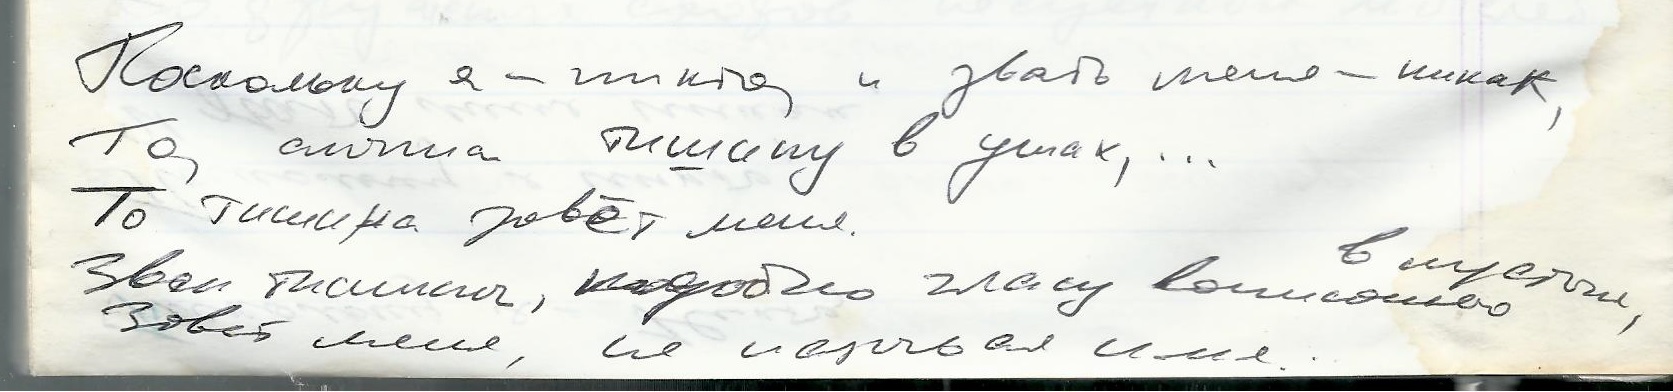 Поскольку я – никто, и звать меня – никак,
То, слыша тишину в ушах, ...
То тишина зовёт меня.
Звон тишины, подобно гласу вопиющего в пустыне,
Зовёт меня, не называя имя..